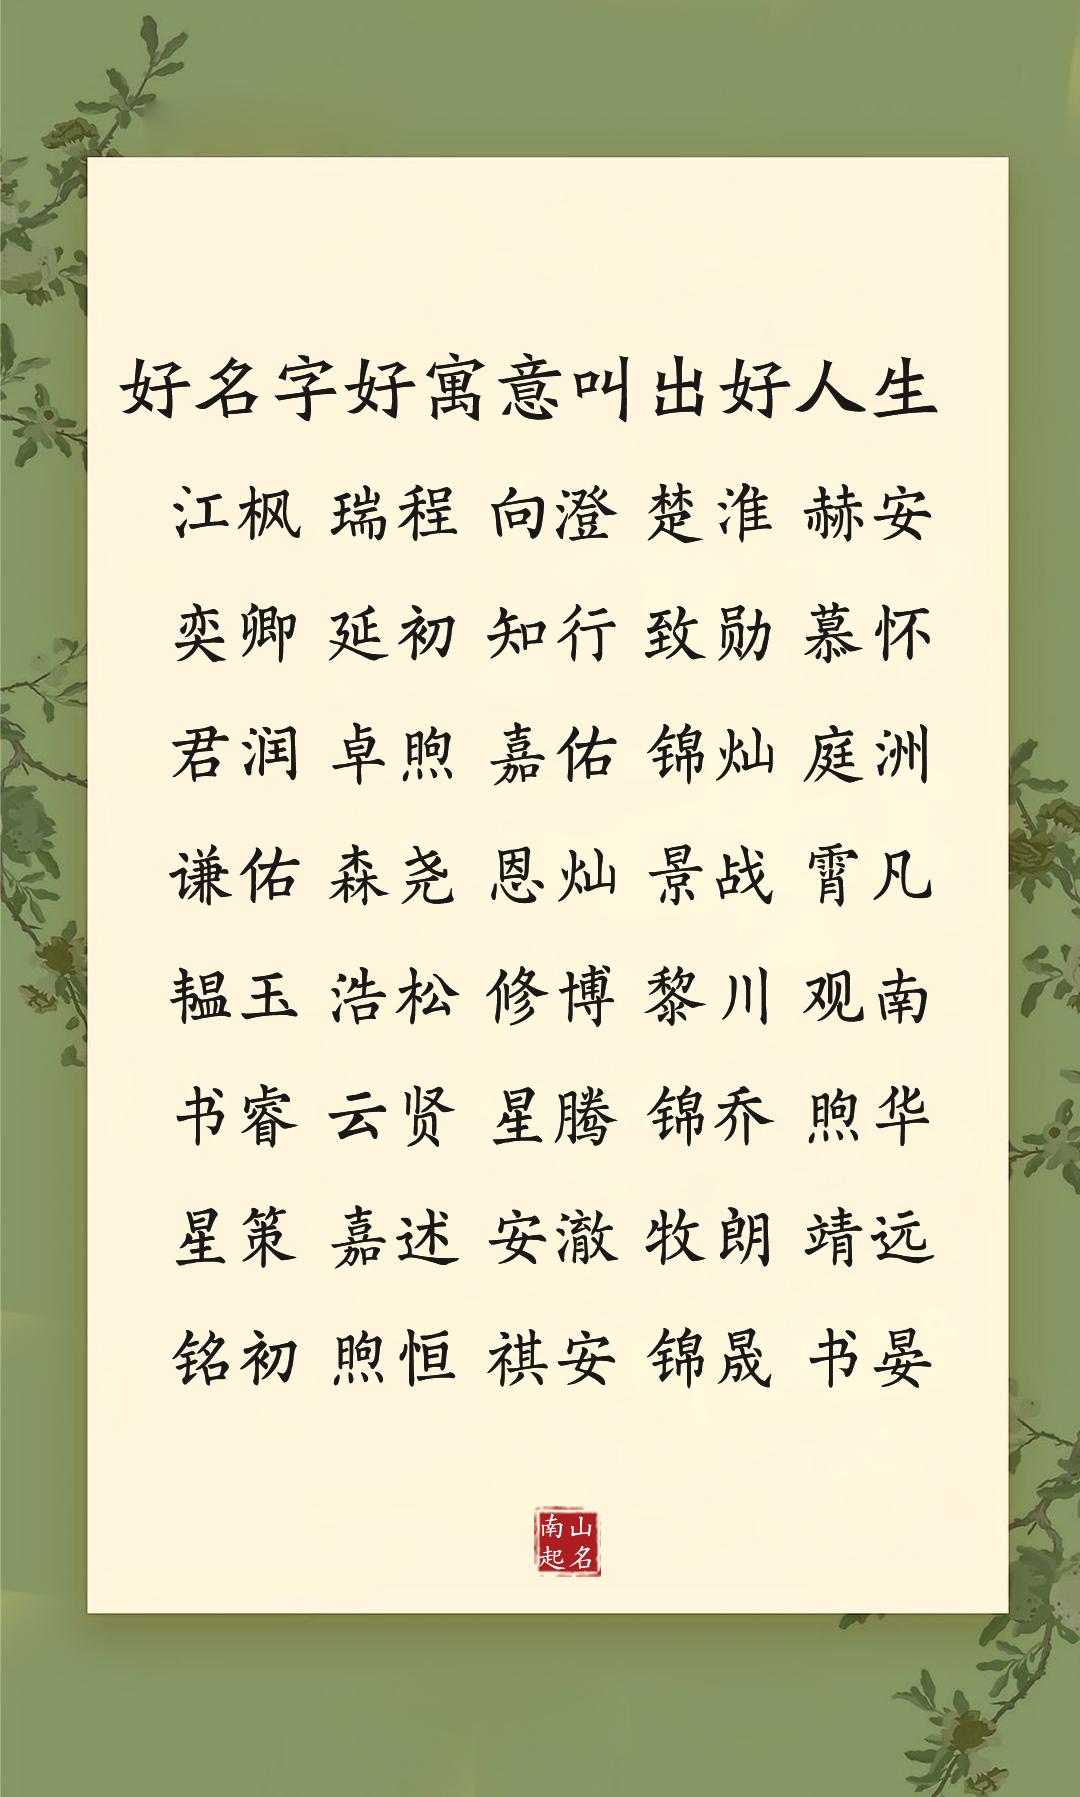 好名字好寓意叫出好人生
江枫 瑞程 向澄 楚淮 赫安
奕卿 延初 知行 致勋 慕怀
君润 卓煦 嘉佑 锦灿 庭洲
谦佑 森尧 恩灿 景战 霄凡
韫玉 浩松 修博 黎川 观南
书睿 云贤 星腾 锦乔 煦华
星策 嘉述 安澈 牧朗 靖远
铭初 煦恒 祺安 锦晟 书晏
南山
起名